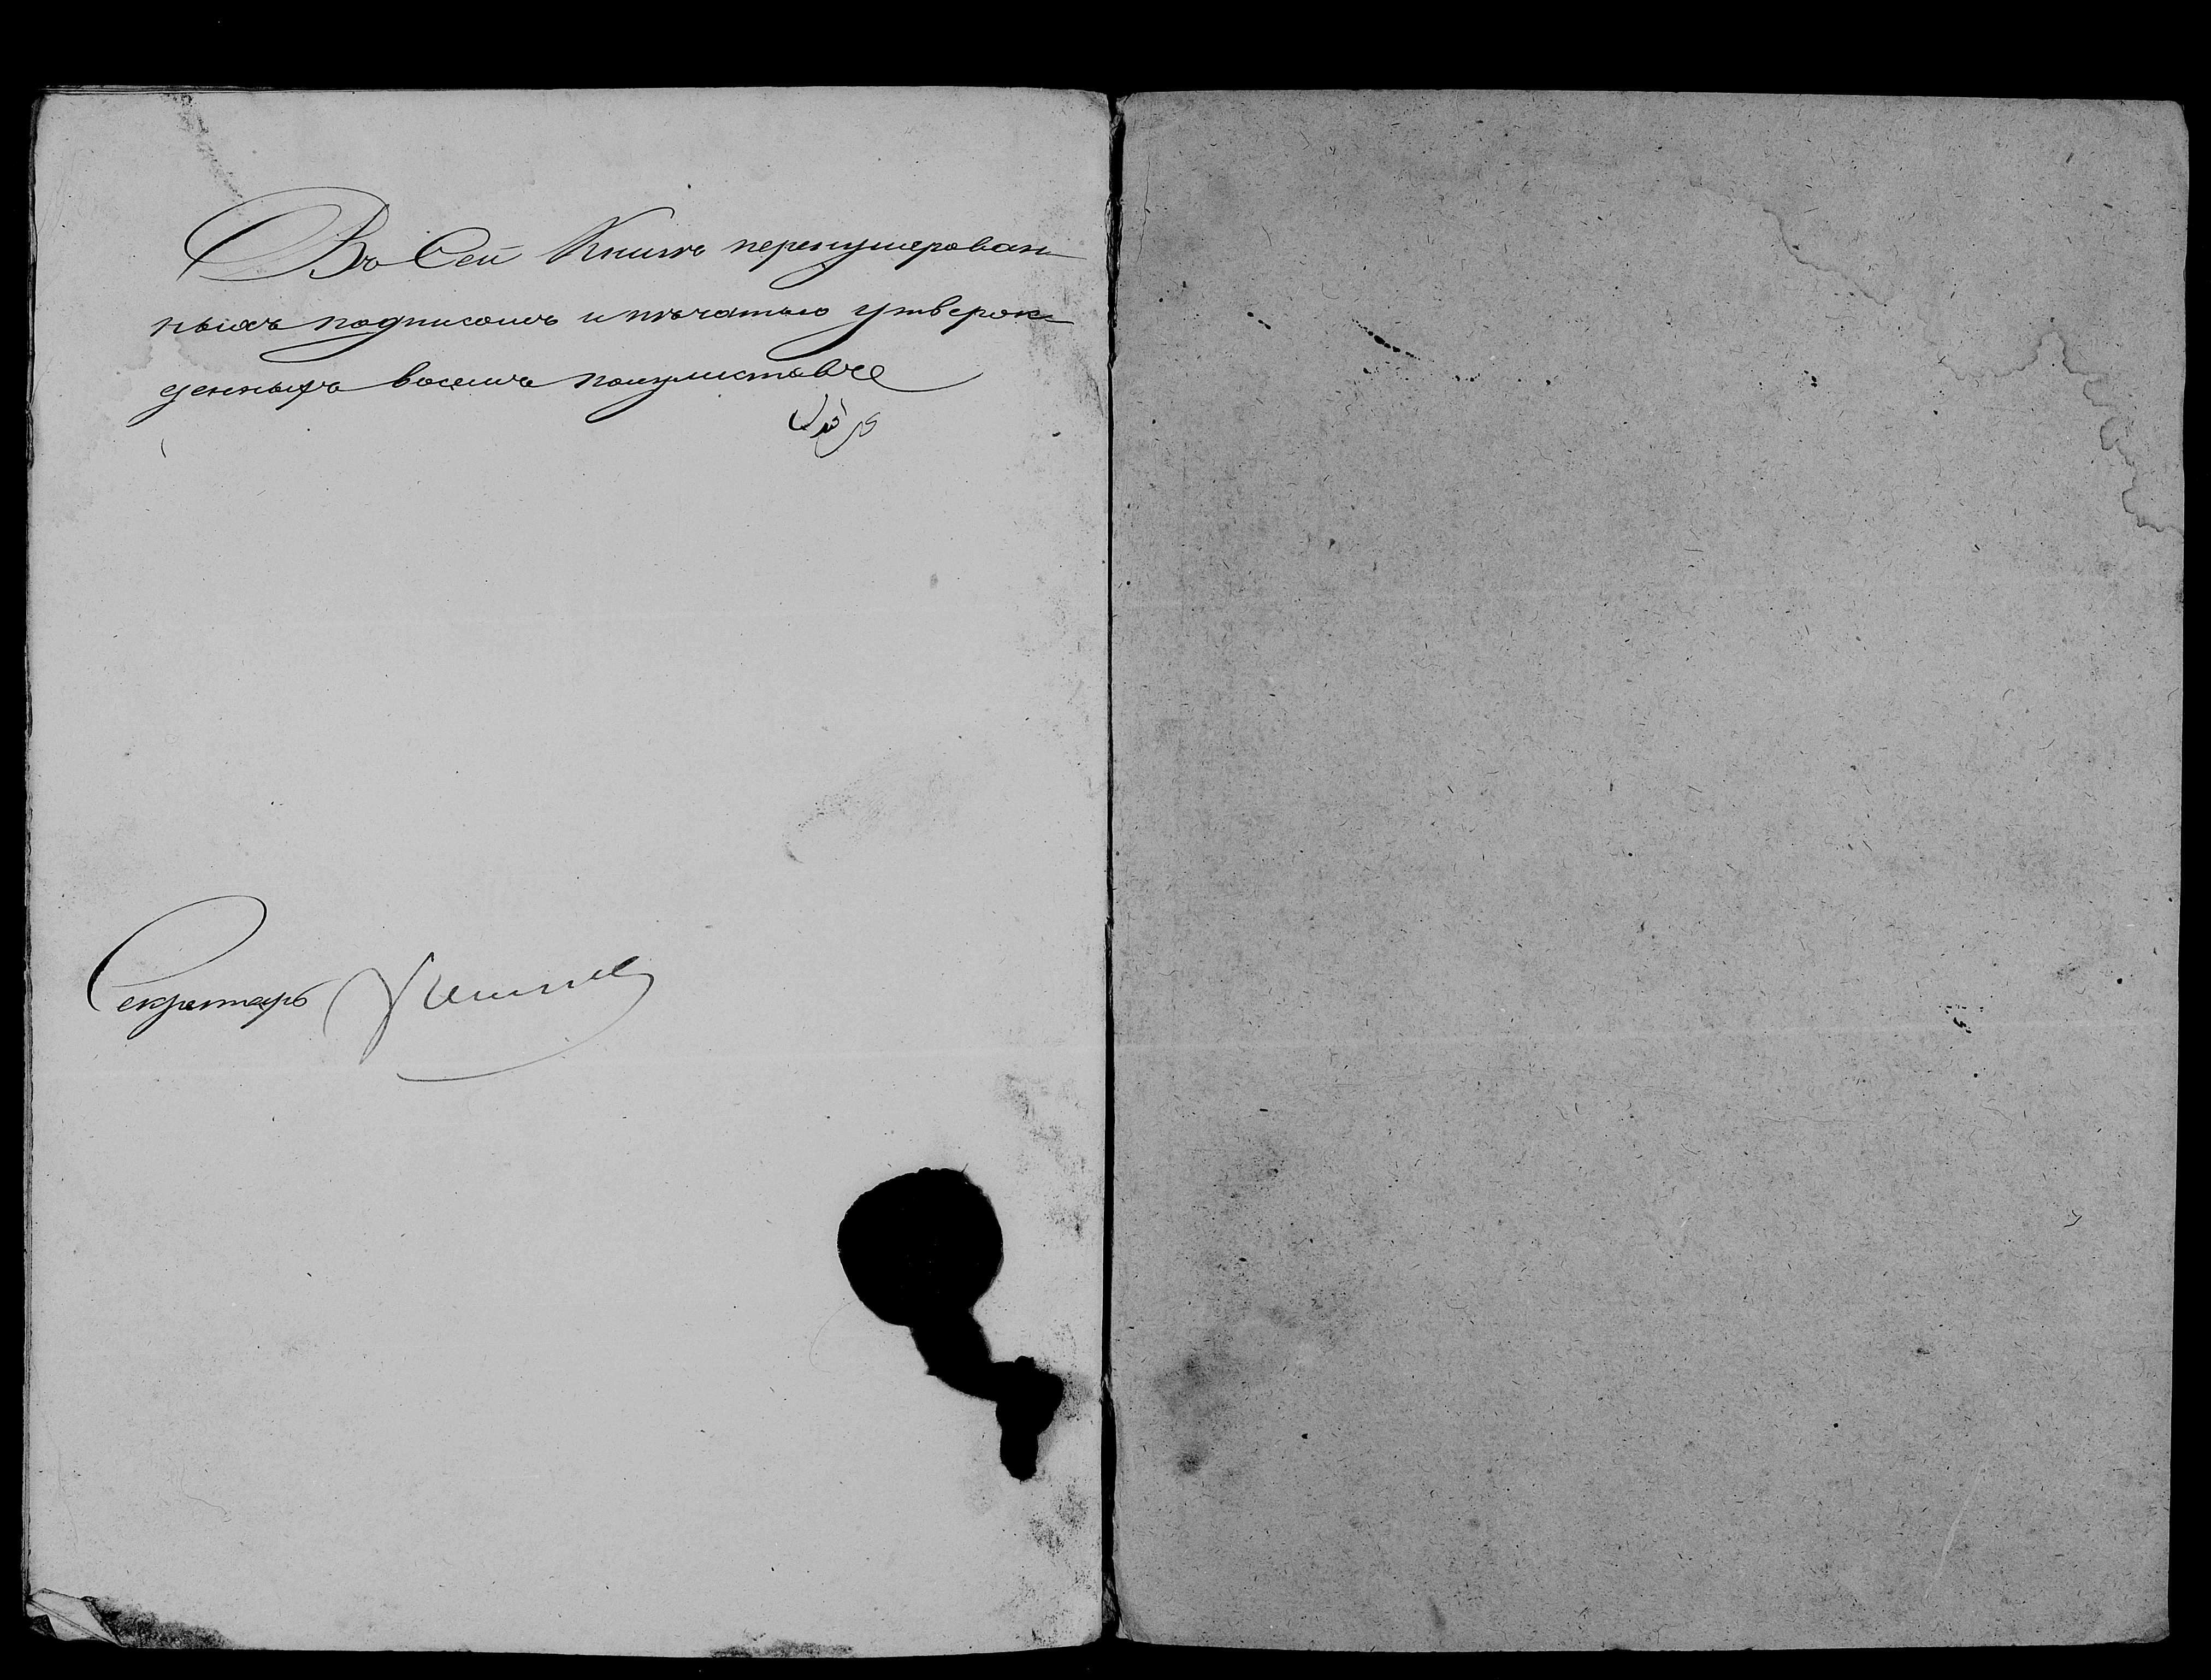 Въ Сей Книгѣ перенумерован
ныхъ подписомъ и печатью утверж
денныхъ восемь полулистовъ
Секретарь